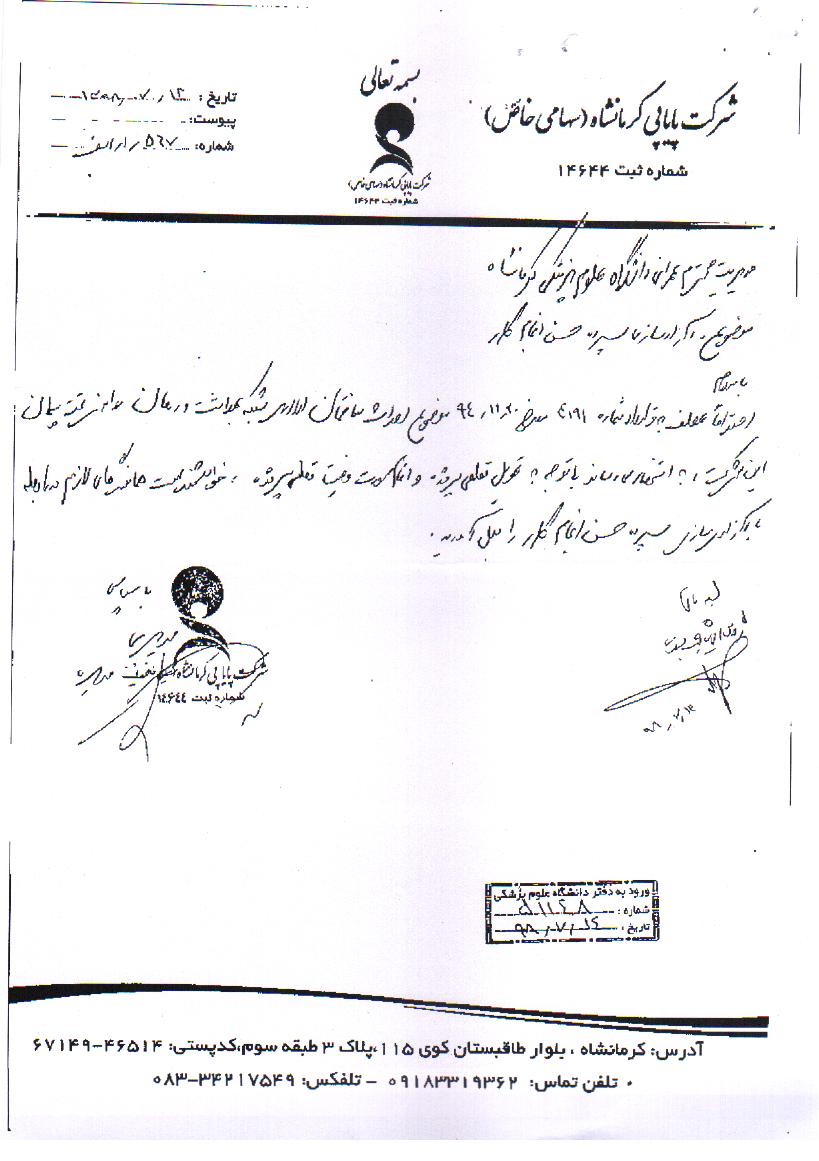 بسمه تعالی
شرکت پاپایی کرمانشاه (سهامی خاص)
شماره ثبت ۱۴۶۴۴
تاریخ : ۱۳۹۸/۰۷/۱۳
پیوست:
شماره: ۵۶۷/ر/الف
شرکت پاپایی کرمانشاه (سهامی خاص)
شماره ثبت ۱۴۶۴۴
مدیریت محترم عمرانی دانشگاه علوم پزشکی کرمانشاه
موضوع: آزادسازی سپرده حسن انجام کار
با سلام
احتراماً عطف به قرارداد شماره ۴۱۹۱ مورخ ۹۴/۱۱/۲۰ موضوع احداث ساختمان اداری شبکه بهداشت و درمان
این شرکت، به استحضار می‌رساند با توجه به تحویل قطعی پروژه و صورت وضعیت قطعی پروژه، خواهشمند است هماهنگی‌های لازم در رابطه
با آزادسازی سپرده حسن انجام کار را بعمل آورید.
با سپاس
شرکت پاپایی کرمانشاه
شماره ثبت ۱۴۶۴۴
۹۸/۷/۱۳
ورود به دفتر دانشگاه علوم پزشکی
شماره: ۵۱۱۴۸
تاریخ: ۹۸/۷/۱۴
آدرس: کرمانشاه ، بلوار طاقبستان کوی ۱۱۵،پلاک ۳ طبقه سوم،کدپستی: ۴۶۵۱۴-۶۷۱۴۹
تلفن تماس: ۰۹۱۸۳۳۱۹۳۶۲ - تلفکس: ۳۴۲۱۷۵۴۹-۰۸۳